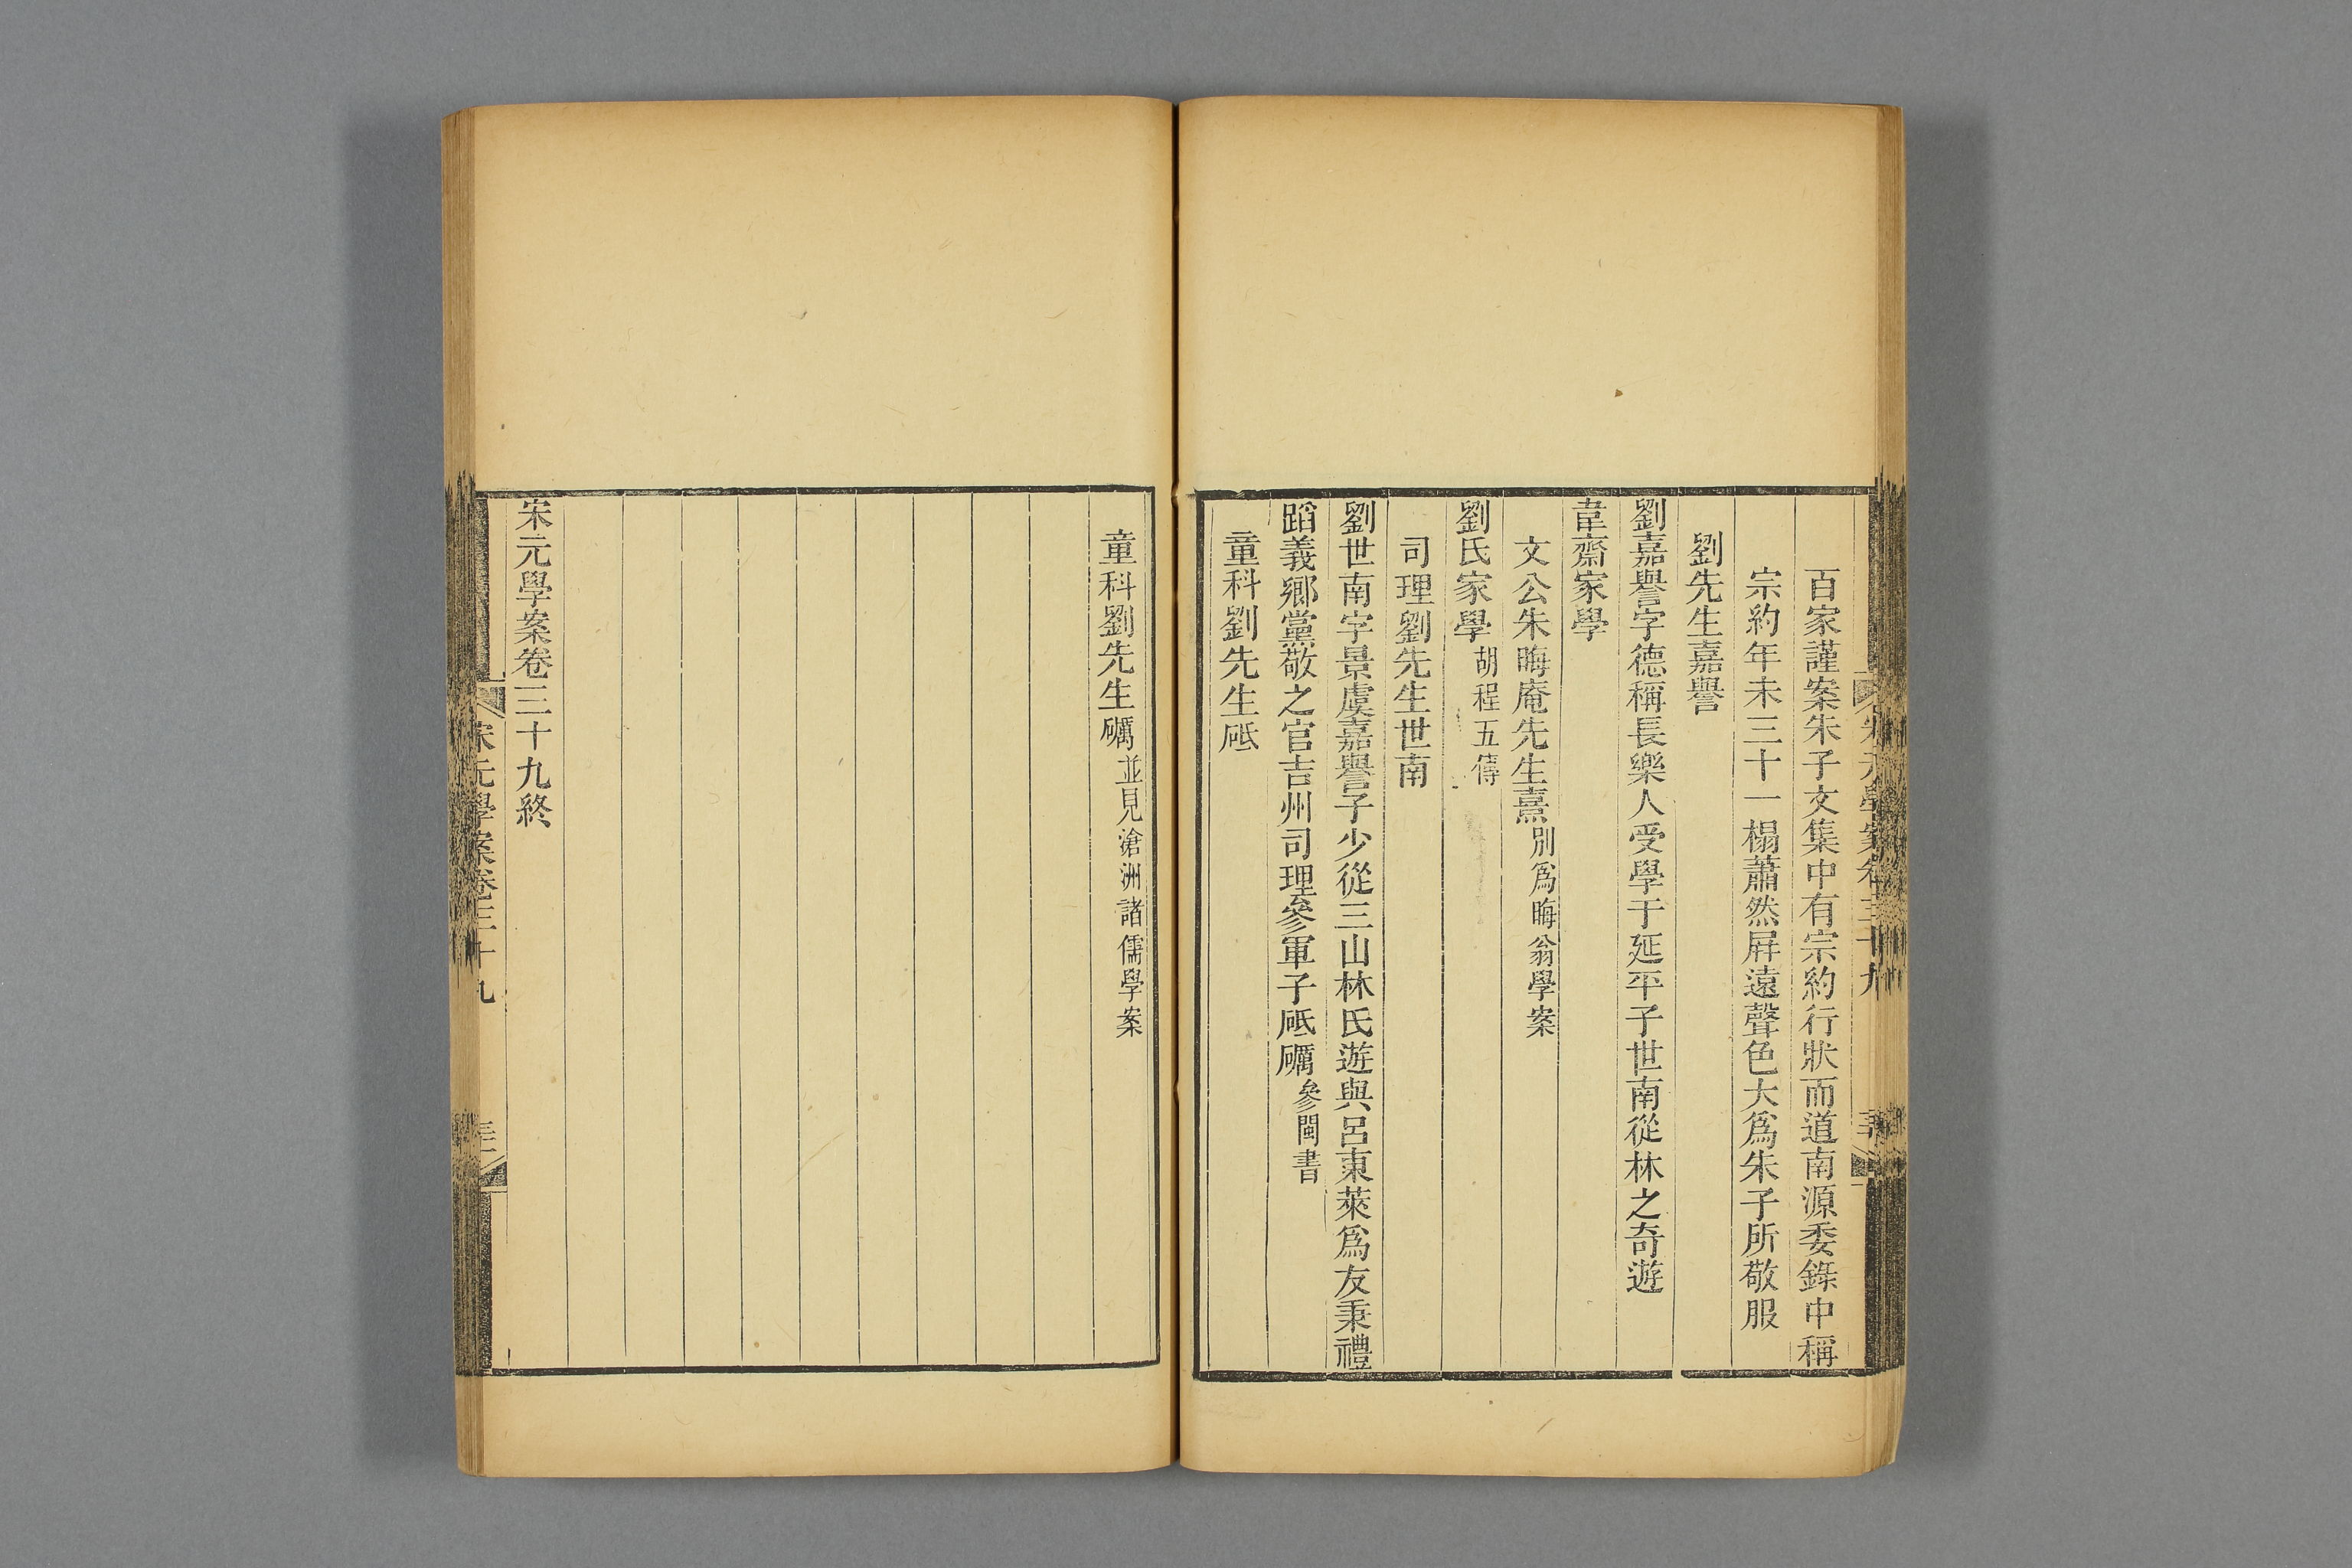 百家謹案朱子文集中有宗約行狀而道南源委錄中稱
宗約年未三十一榻蕭然屛遠聲色大爲朱子所敬服
劉先生嘉譽
劉嘉譽字德稱長樂人受學于延平子世南從林之奇遊
韋齋家學
文公朱晦庵先生熹別爲晦翁學案
劉氏家學胡程五傳
司理劉先生世南
劉世南字景虞嘉譽子少從三山林氏遊與呂東萊爲友秉禮
蹈義鄉黨敬之官吉州司理參軍子砥礪參閩書
童科劉先生砥
童科劉先生礪並見滄洲諸儒學案
宋元學案卷三十九終
宋元學案卷三十九